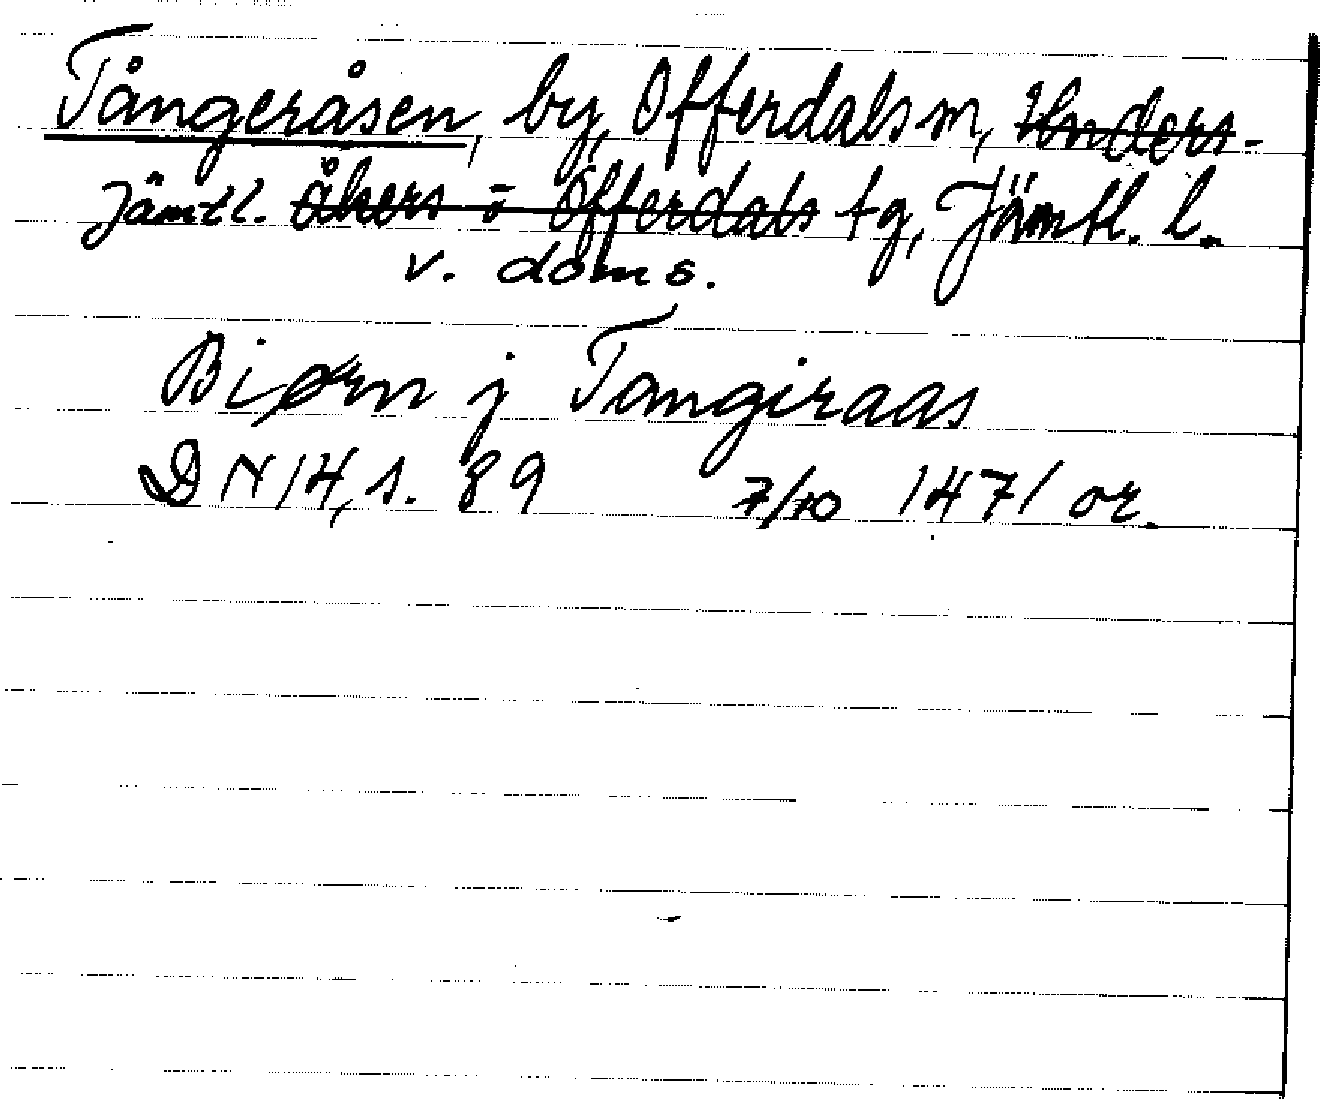 Tångeråsen, by, Offerdals sn, Unders-
Jämtl. åkers o Offerdals tg, Jämtl. l.
v. doms.
Biørn j Tangiraas
DN 14, s. 89 7/10 1471 or.